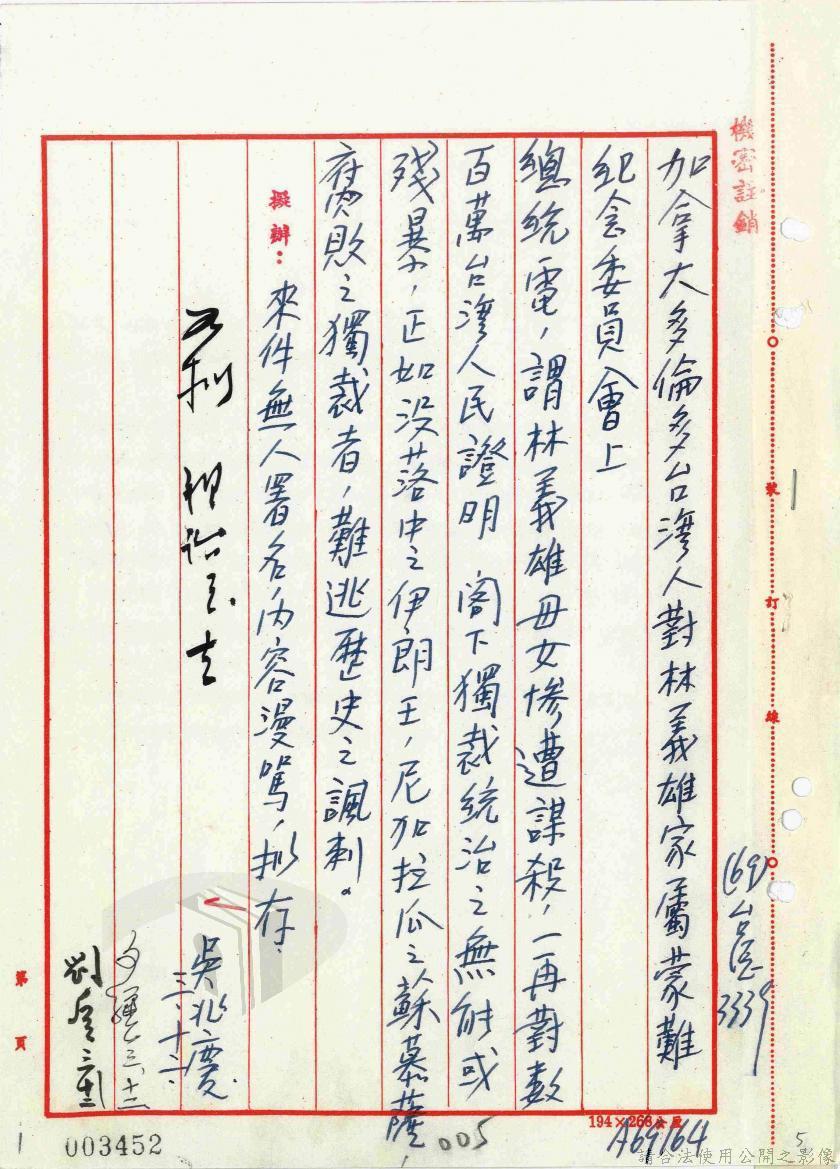 機密註銷
加拿大多倫多台灣人對林義雄家屬蒙難
紀念委員會上
總統電，謂林義雄母女慘遭謀殺，一再對數
百萬台灣人民證明　閣下獨裁統治之無能或
殘暴，正如沒落中之伊朗王，尼加拉瓜之蘇慕薩，
腐敗之獨裁者，難逃歷史之諷刺。
擬辦：來件無人署名，內容漫罵，擬存。
吳兆慶
三、十二、
三、十二
裝
訂
線
(69)台
3339
第
頁
194×266公厘
A69164
005
003452
1
5
請合法使用公開之影像